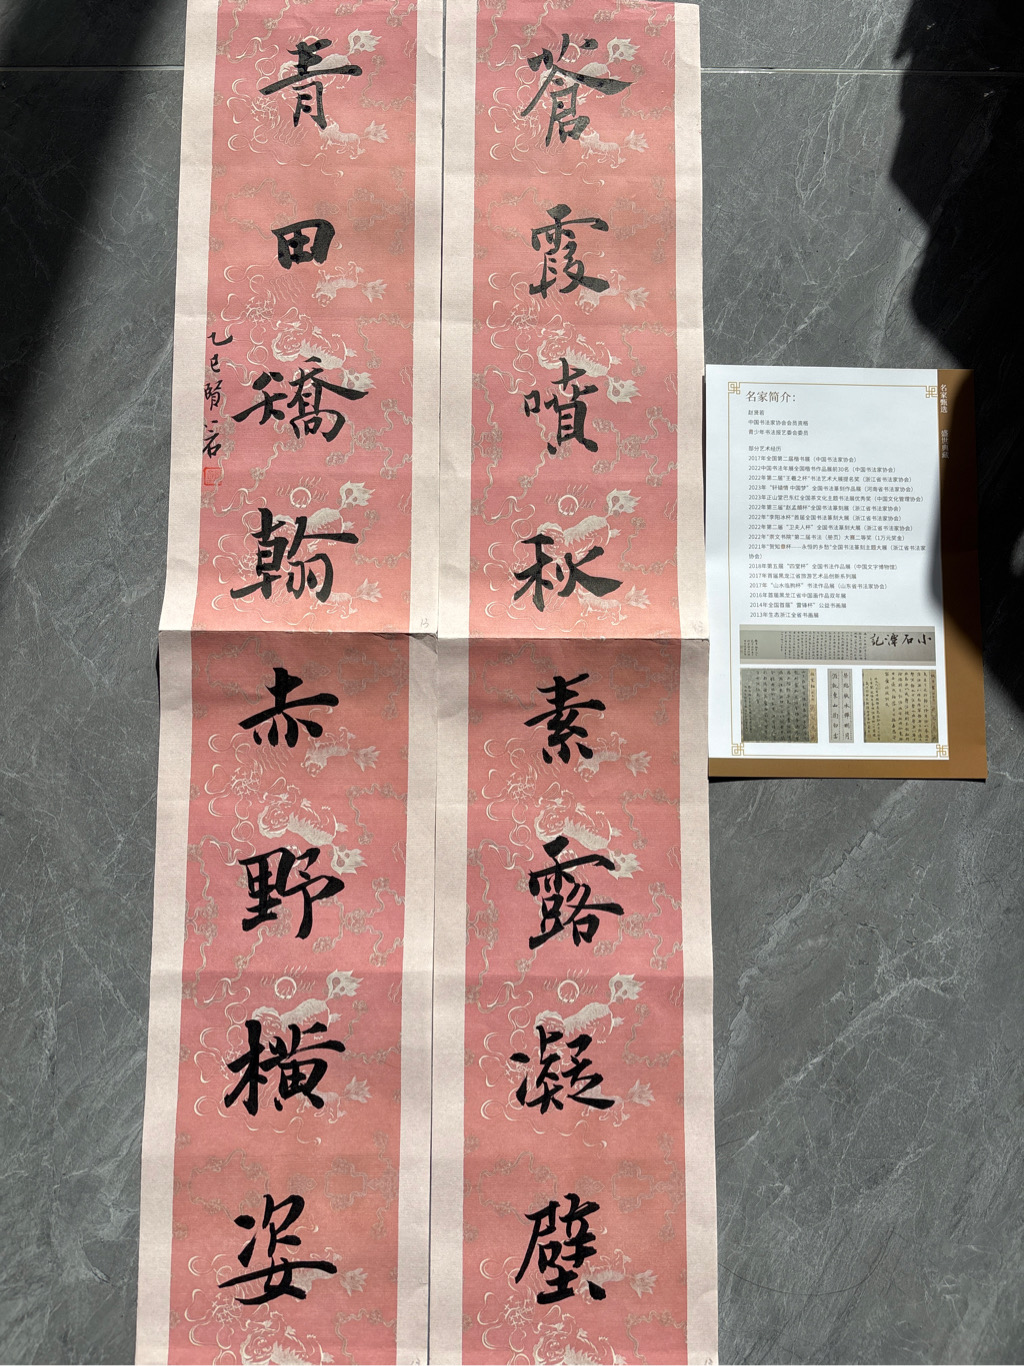 蒼霞噴秋素露凝壁
青田矯翰赤野橫姿
乙巳賢若
名家甄选 盛世典藏
名家简介：
赵贤若
中国书法家协会会员资格
青少年书法展艺委会委员
部分艺术经历
2017年全国第二届楷书展（中国书法家协会）
2022中国书法年展全国楷书作品展前30名（中国书法家协会）
2022年第二届“王羲之杯”书法艺术大展提名奖（浙江省书法家协会）
2023年“轩辕情 中国梦”全国书法篆刻作品展（河南省书法家协会）
2023年正山堂巴东红全国茶文化主题书法展优秀奖（中国文化管理协会）
2022年第三届“赵孟頫杯”全国书法篆刻展（浙江省书法家协会）
2022年“李阳冰杯”首届全国书法篆刻大展（浙江省书法家协会）
2022年第二届“卫夫人杯”全国书法篆刻大展（浙江省书法家协会）
2022年“贵文书牍”第二届书法（册页）大赛二等奖（1万元奖金）
2021年“贺知章杯——永恒的乡愁”全国书法篆刻主题大展（浙江省书法家
协会）
2018年第五届“四堂杯”全国书法作品展（中国文字博物馆）
2017年首届黑龙江省旅游艺术品创新系列展
2017年“山水临朐杯”书法作品展（山东省书法家协会）
2016年首届黑龙江省中国画作品双年展
2014年全国首届“雷锋杯”公益书画展
2013年生态浙江全省书画展
小石潭記